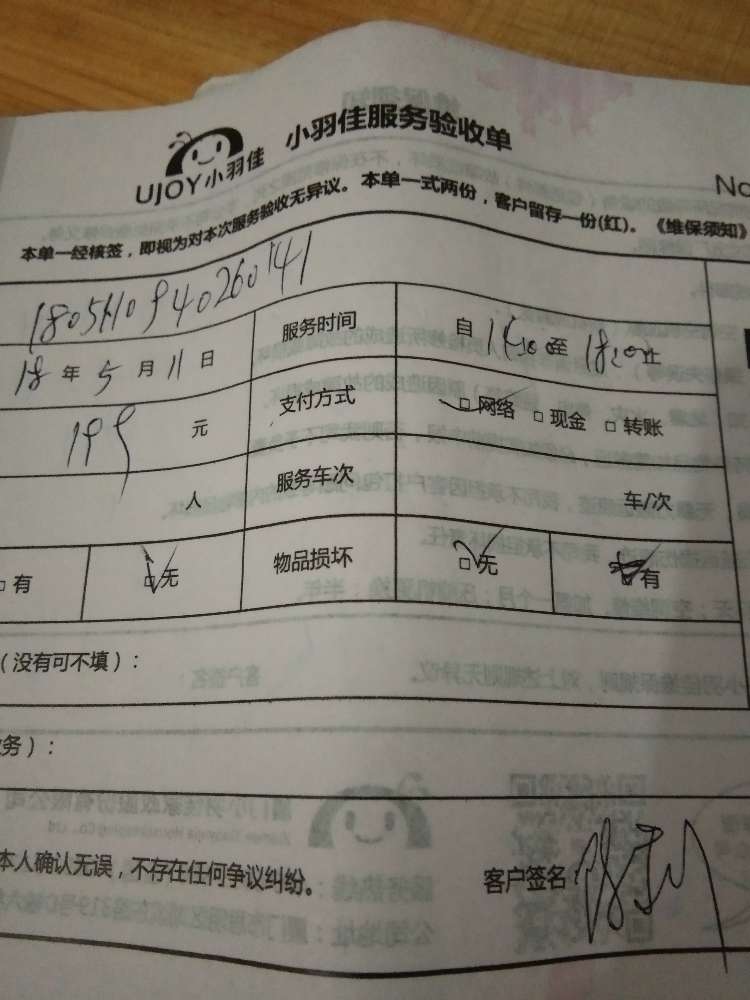 小羽佳服务验收单
UJOY小羽佳
No
本单一经核签，即视为对本次服务验收无异议。本单一式两份，客户留存一份(红)。《维保须知》
服务时间 自14:30至18:30止
18年5月11日
199元 支付方式 □网络 □现金 □转账
人 服务车次 车/次
□有 □无 物品损坏 □无 有
（没有可不填）：
务）：
本人确认无误，不存在任何争议纠纷。 客户签名